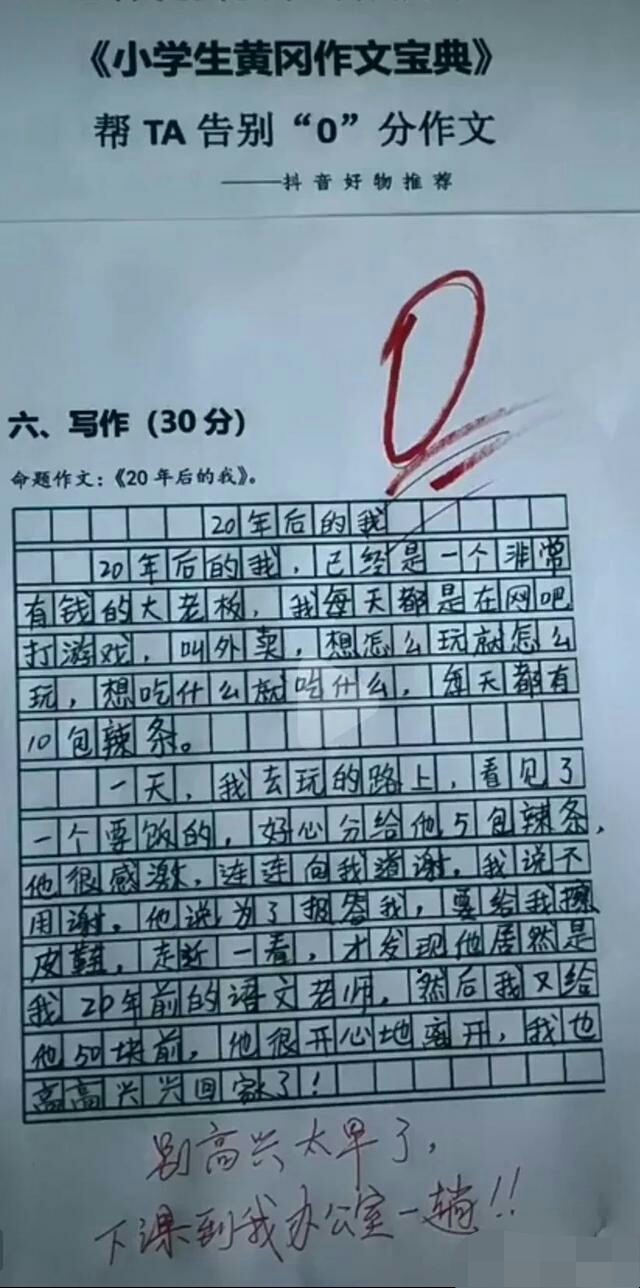 《小学生黄冈作文宝典》
帮 TA 告别“0”分作文
——抖音好物推荐
0
六、写作（30 分）
命题作文：《20 年后的我》。
20年后的我
20年后的我，已经是一个非常
有钱的大老板，我每天都是在网吧
打游戏，叫外卖，想怎么玩就怎么
玩，想吃什么就吃什么，每天都有
10包辣条。
一天，我去玩的路上，看见了
一个要饭的，好心分给他5包辣条，
他很感激，连连向我道谢。我说不
用谢。他说为了报答我，要给我擦
皮鞋，走近一看，才发现他居然是
我20年前的语文老师。然后我又给
他50块前，他很开心地离开，我也
高高兴兴回家了！
别高兴太早了，
下课到我办公室一趟!!